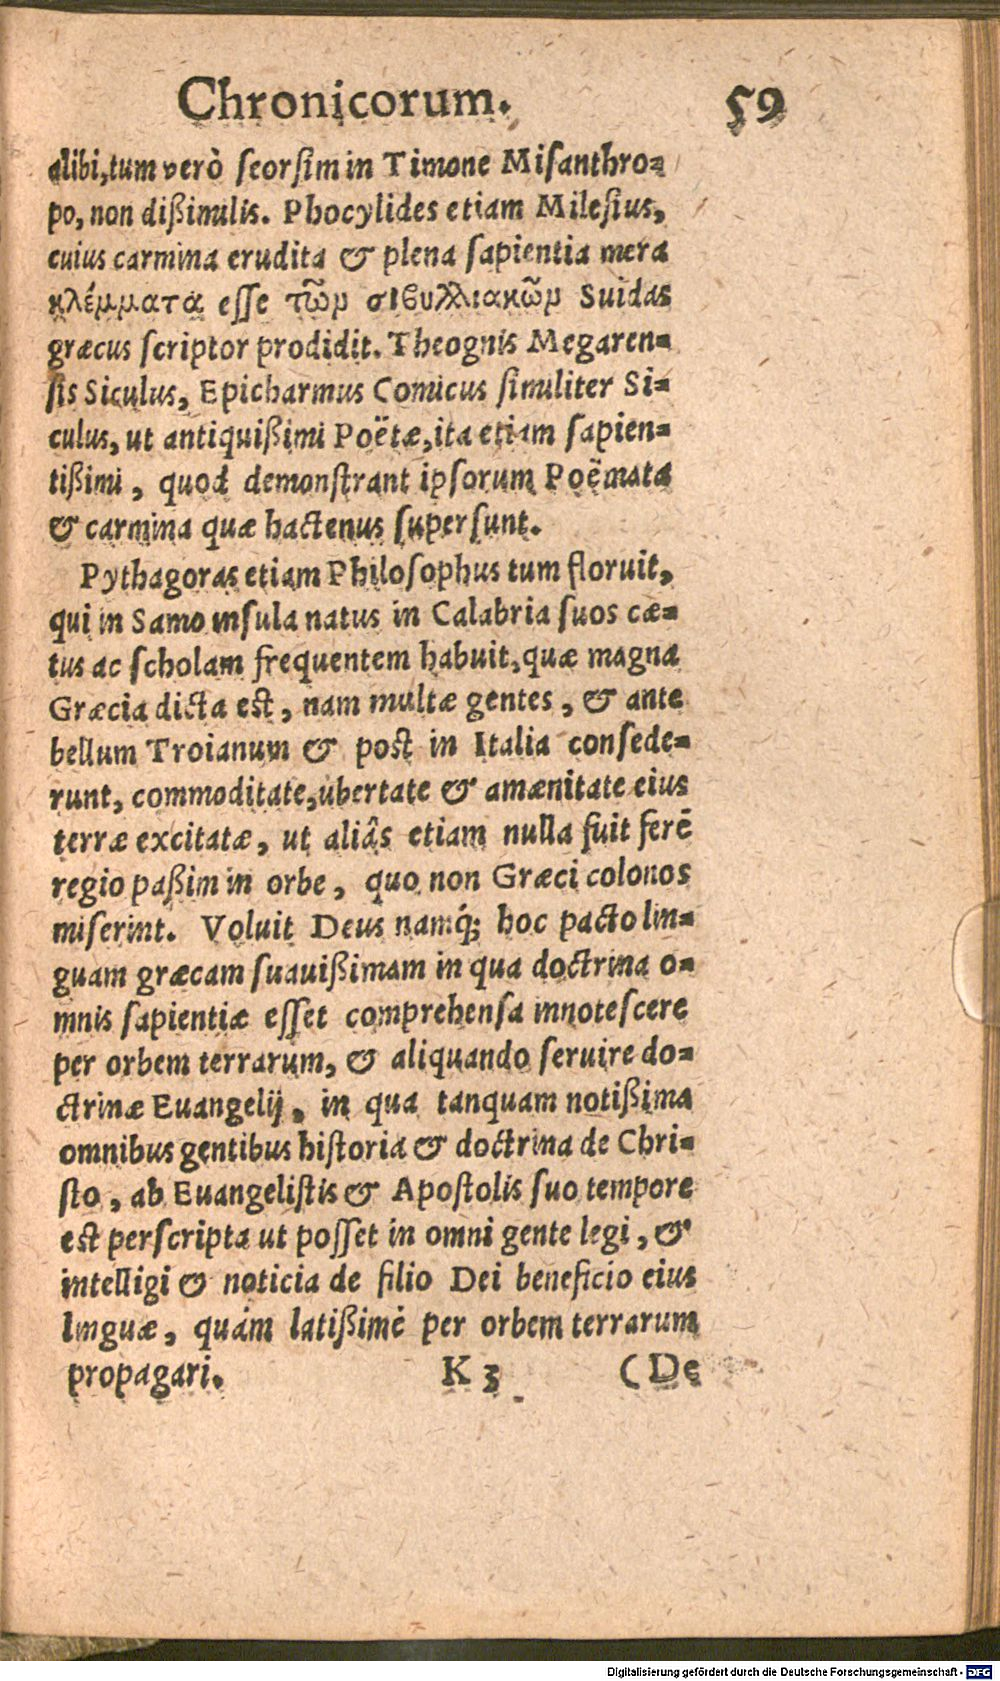 Chronicorum. 59
alibi, tum verò seorsim in Timone Misanthro-
po, non dißimilis. Phocylides etiam Milesius,
cuius carmina erudita & plena sapientia mera
κλέμματα esse τῶν σιβυλλιακῶν Suidas
græcus scriptor prodidit. Theognis Megaren-
sis Siculus, Epicharmus Comicus similiter Si-
culus, ut antiquißimi Poëtæ, ita etiam sapien-
tißimi, quod demonstrant ipsorum Poëmata
& carmina quæ hactenus supersunt.
Pythagoras etiam Philosophus tum floruit,
qui in Samo insula natus in Calabria suos cæ-
tus ac scholam frequentem habuit, quæ magna
Græcia dicta est, nam multæ gentes, & ante
bellum Troianum & post in Italia consede-
runt, commoditate, ubertate & amænitate eius
terræ excitatæ, ut aliâs etiam nulla fuit ferè
regio paßim in orbe, quo non Græci colonos
miserint. Voluit Deus namq́; hoc pacto lin-
guam græcam suauißimam in qua doctrina o-
mnis sapientiæ esset comprehensa innotescere
per orbem terrarum, & aliquando seruire do-
ctrinæ Euangelij, in qua tanquam notißima
omnibus gentibus historia & doctrina de Chri-
sto, ab Euangelistis & Apostolis suo tempore
est perscripta ut posset in omni gente legi, &
intelligi & noticia de filio Dei beneficio eius
linguæ, quám latißimè per orbem terrarum
propagari. K 3 (De
Digitalisierung gefördert durch die Deutsche Forschungsgemeinschaft - DFG